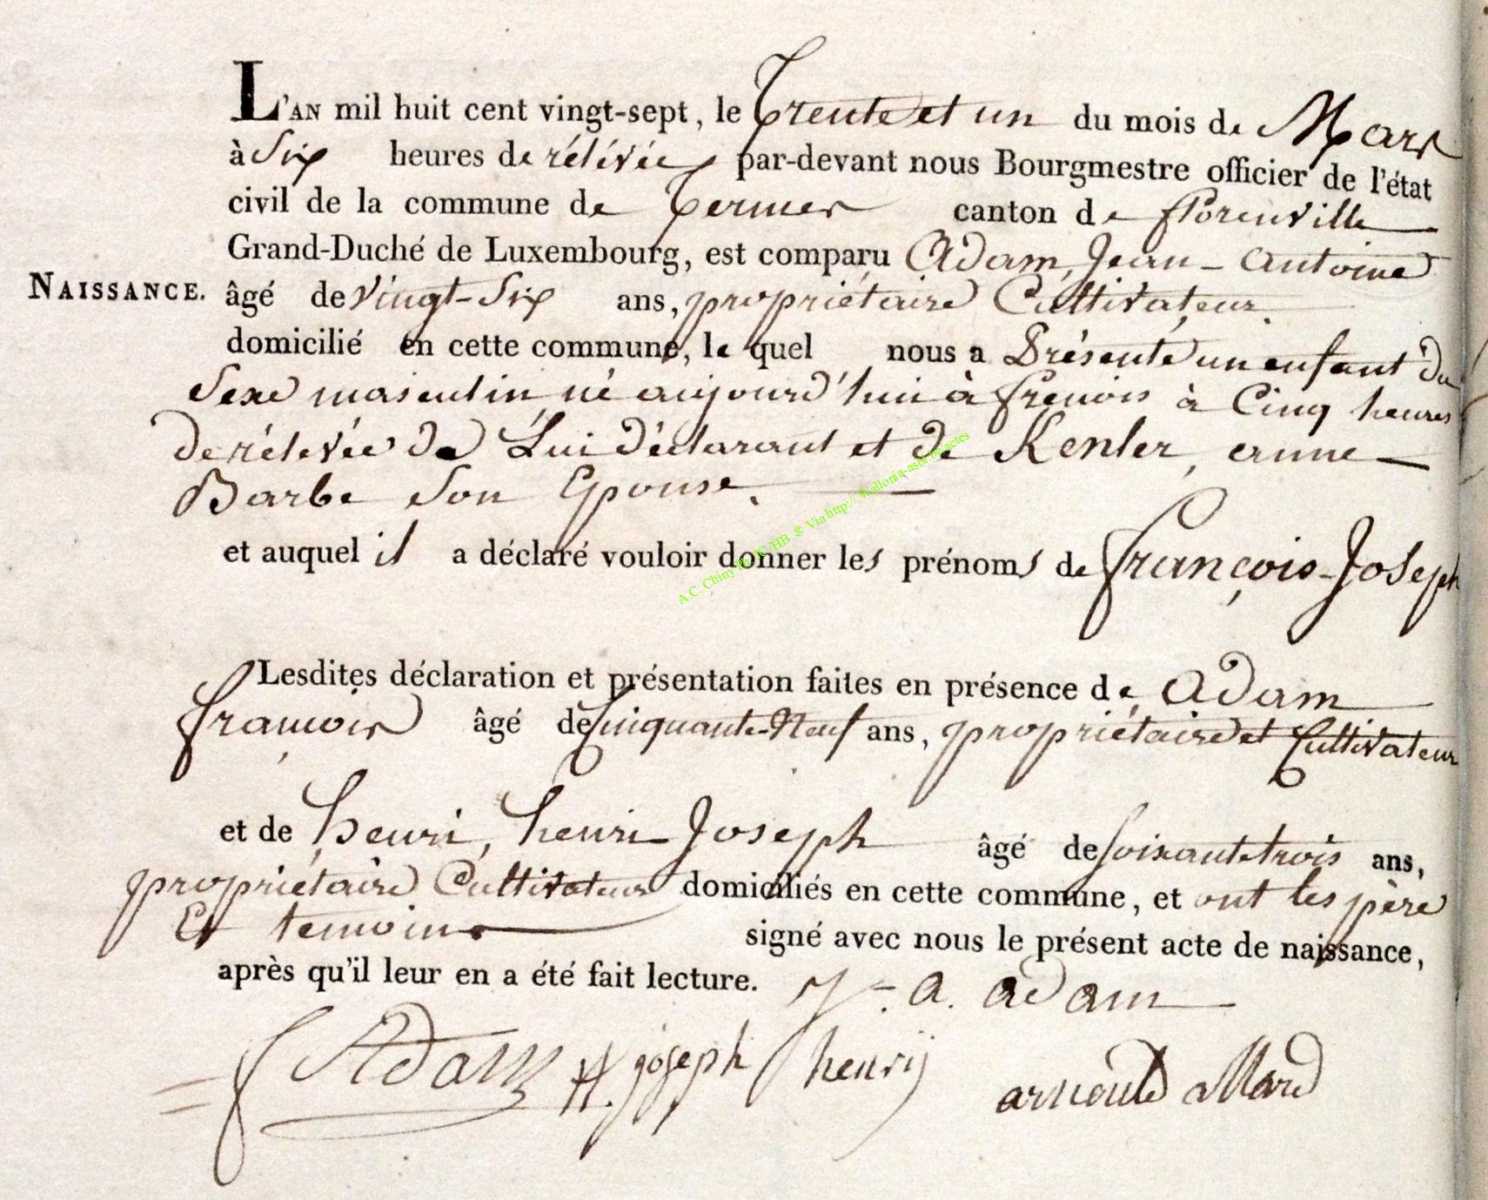 L'AN mil huit cent vingt-sept, le Trente et un du mois de Mars
à Six heures de rélévée par-devant nous Bourgmestre officier de l'état
civil de la commune de Termes canton de florenville
Grand-Duché de Luxembourg, est comparu Adam, Jean-Antoine
NAISSANCE. âgé de vingt-Six ans, propriétaire Cultivateur.
domicilié en cette commune, le quel nous a Présenté un enfant du
Sexe masculin, né aujourd'hui à frenois à Cinq heures
de rélévée de Lui déclarant et de Kenler, anne
Barbe Son Epouse.
et auquel il a déclaré vouloir donner les prénoms de françois-Joseph
Lesdites déclaration et présentation faites en présence de Adam
françois âgé de Cinquante-Neuf ans, propriétaire et Cultivateur
et de henri, henri Joseph âgé de soixante trois ans,
propriétaire Cultivateur domiciliés en cette commune, et ont les père
Et temoins signé avec nous le présent acte de naissance,
après qu'il leur en a été fait lecture. J.-a. adam
f Adam H. joseph henrij arnould allard